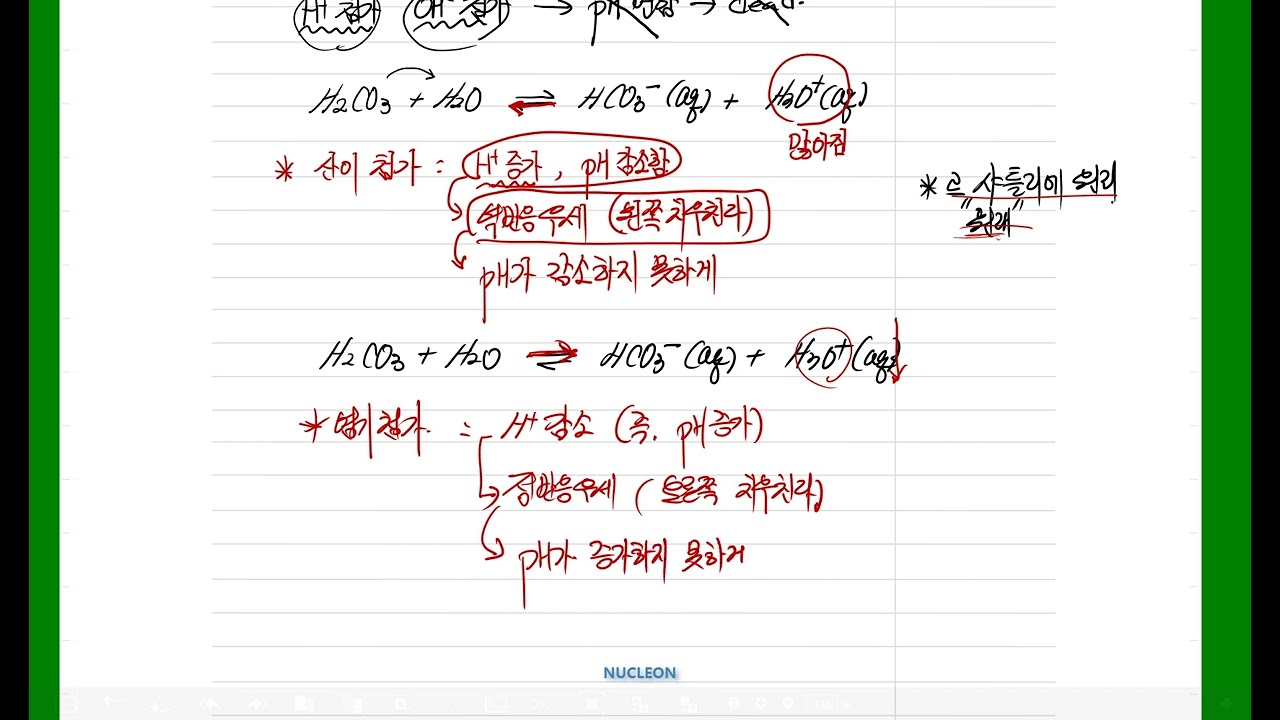 H⁺ 첨가 OH⁻ 첨가 → pH 변함 → dead.
H₂CO₃ + H₂O ⇌ HCO₃⁻(aq) + H₃O⁺(aq)
많아짐
* 산이 첨가 : H⁺ 증가, pH 감소함
* 르 샤틀리에 원리
역반응우세 (왼쪽 치우친다)
pH가 감소하지 못하게
H₂CO₃ + H₂O ⇌ HCO₃⁻(aq) + H₃O⁺(aq)
* 염기첨가 : H⁺ 감소 (즉, pH증가)
정반응우세 (오른쪽 치우친다)
pH가 증가하지 못하게
NUCLEON